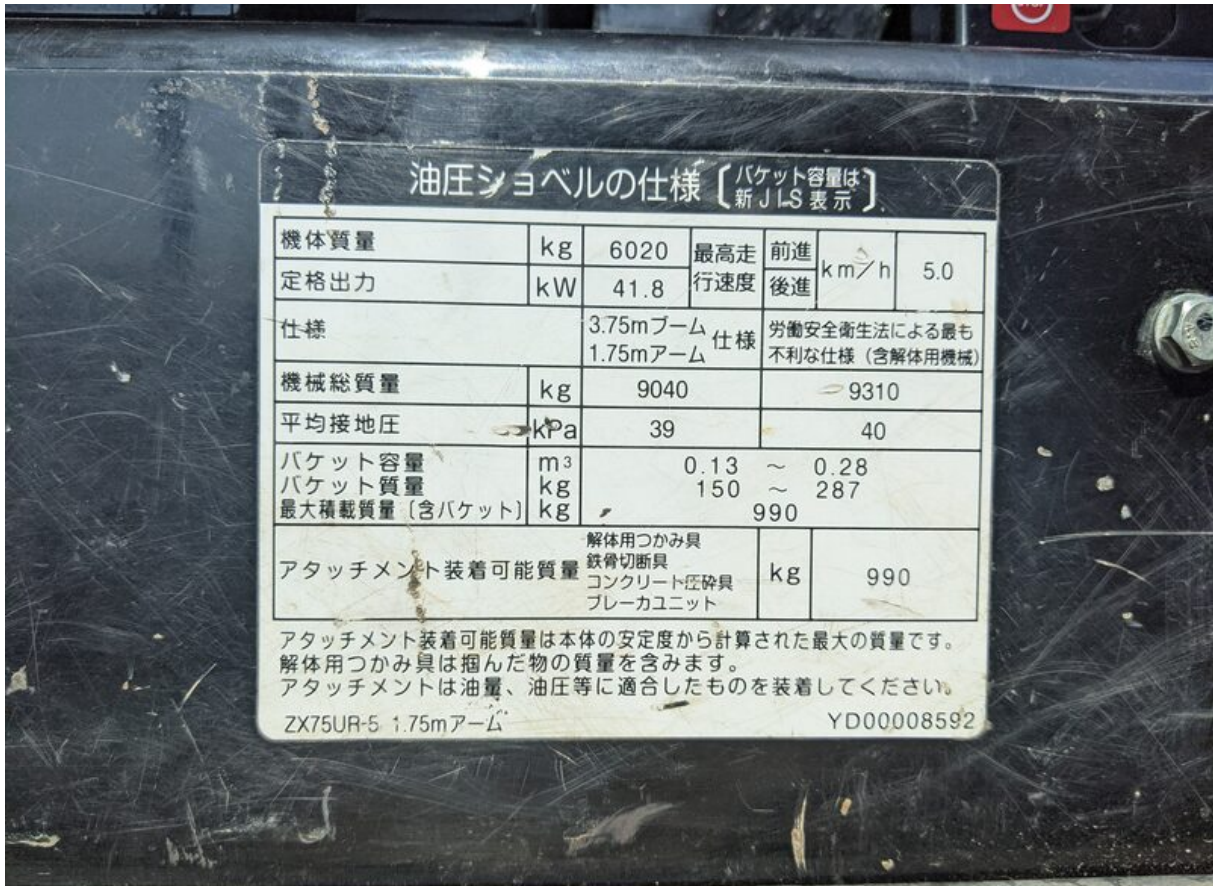 油圧ショベルの仕様〔バケット容量は新JIS表示〕
機体質量 kg 6020 最高走行速度 前進 後進 km/h 5.0
定格出力 kW 41.8
仕様 3.75mブーム 1.75mアーム 仕様 労働安全衛生法による最も不利な仕様(含解体用機械)
機械総質量 kg 9040 9310
平均接地圧 kPa 39 40
バケット容量 m³ 0.13 ~ 0.28
バケット質量 kg 150 ~ 287
最大積載質量〔含バケット〕 kg 990
アタッチメント装着可能質量 解体用つかみ具 鉄骨切断具 コンクリート圧砕具 ブレーカユニット kg 990
アタッチメント装着可能質量は本体の安定度から計算された最大の質量です。
解体用つかみ具は掴んだ物の質量を含みます。
アタッチメントは油量、油圧等に適合したものを装着してください。
ZX75UR-5 1.75mアーム YD00008592